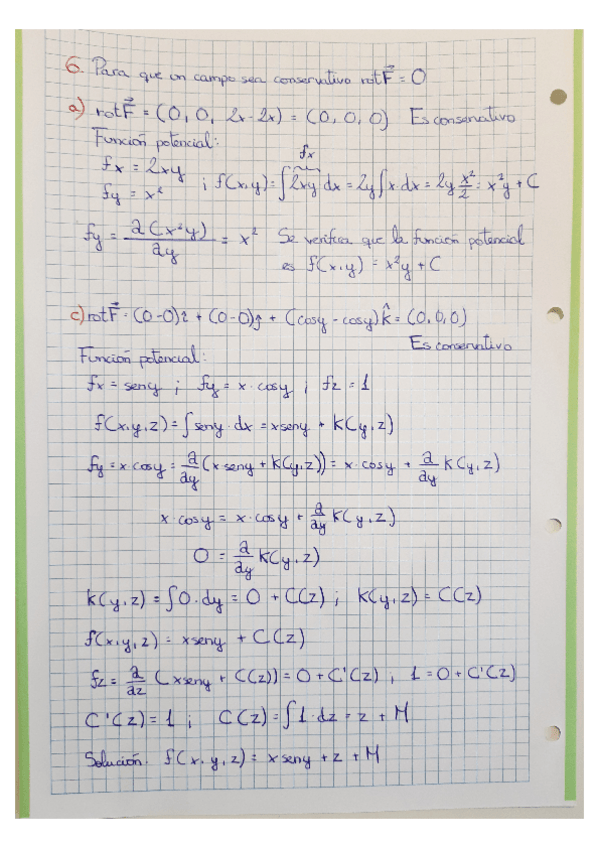 6. Para que un campo sea conservativo rot F⃗ = 0
a) rot F⃗ = (0, 0, 2x-2x) = (0, 0, 0) Es conservativo
Función potencial:
fx = 2xy
fy = x² ; f(x,y) = ∫ 2xy dx = 2y ∫ x·dx = 2y x²/2 = x²y + C
fx
fy = ∂(x²y)/∂y = x² Se verifica que la función potencial
es f(x,y) = x²y + C
c) rot F⃗ = (0-0)î + (0-0)ĵ + (cosy - cosy) k̂ = (0,0,0)
Es conservativo
Función potencial:
fx = seny ; fy = x·cosy ; fz = 1
f(x,y,z) = ∫ seny·dx = xseny + K(y,z)
fy = x·cosy = ∂/∂y (x seny + K(y,z)) = x·cosy + ∂/∂y K(y,z)
x·cosy = x·cosy + ∂/∂y K(y,z)
0 = ∂/∂y K(y,z)
K(y,z) = ∫ 0·dy = 0 + C(z) ; K(y,z) = C(z)
f(x,y,z) = xseny + C(z)
fz = ∂/∂z (xseny + C(z)) = 0 + C'(z) ; 1 = 0 + C'(z)
C'(z) = 1 ; C(z) = ∫ 1·dz = z + M
Solución: f(x,y,z) = xseny + z + M